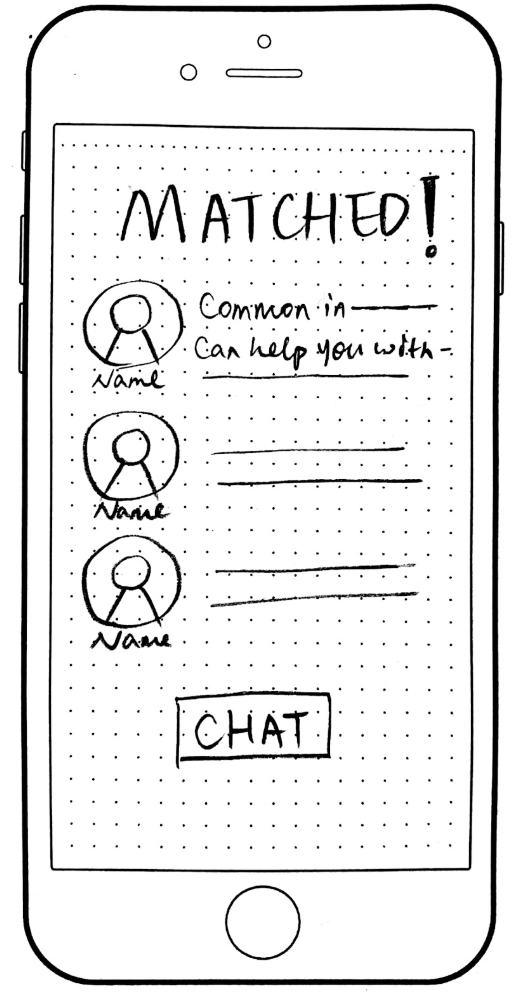 MATCHED!
Common in
Can help you with -
Name
Name
Name
CHAT